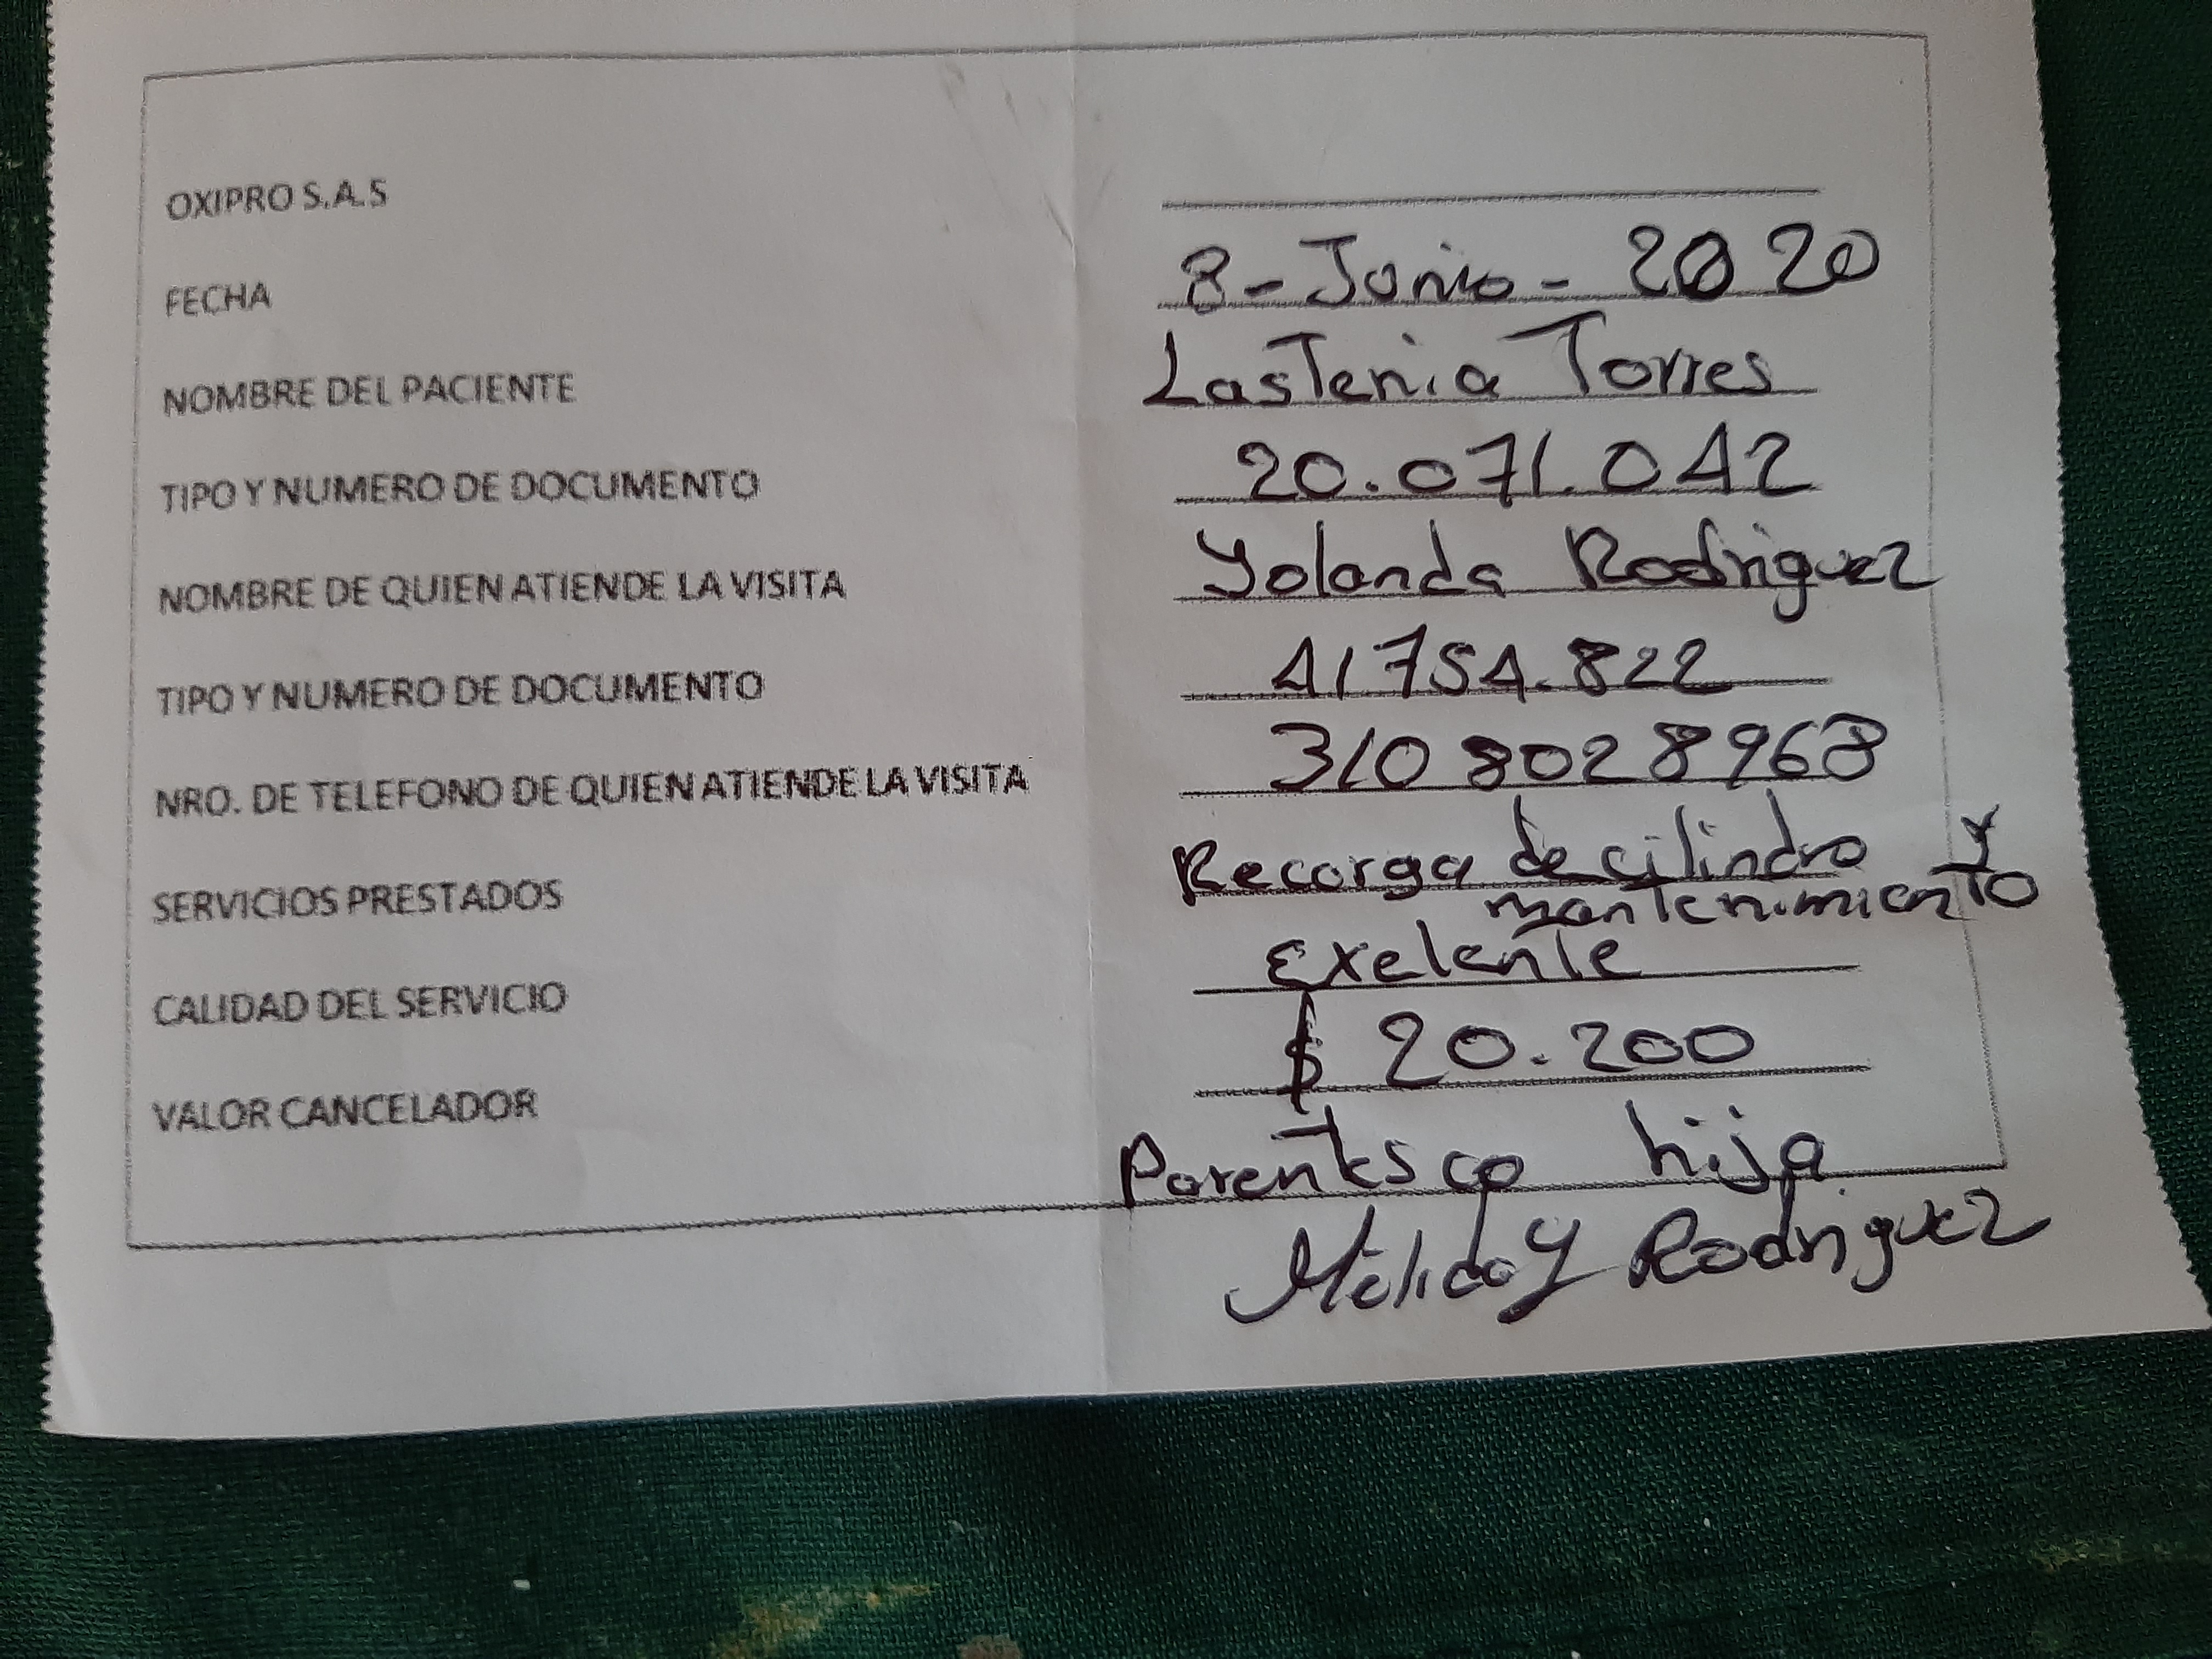 OXIPRO S.A.S
FECHA 8-Junio-2020
NOMBRE DEL PACIENTE Lastenia Torres
TIPO Y NUMERO DE DOCUMENTO 20.071.042
NOMBRE DE QUIEN ATIENDE LA VISITA Yolanda Rodriguez
TIPO Y NUMERO DE DOCUMENTO 41754.822
NRO. DE TELEFONO DE QUIEN ATIENDE LA VISITA 310 8028968
SERVICIOS PRESTADOS Recarga de cilindro y
mantenimiento
CALIDAD DEL SERVICIO Exelente
VALOR CANCELADOR $ 20.200
Parentsco hija
Melida Y Rodriguez